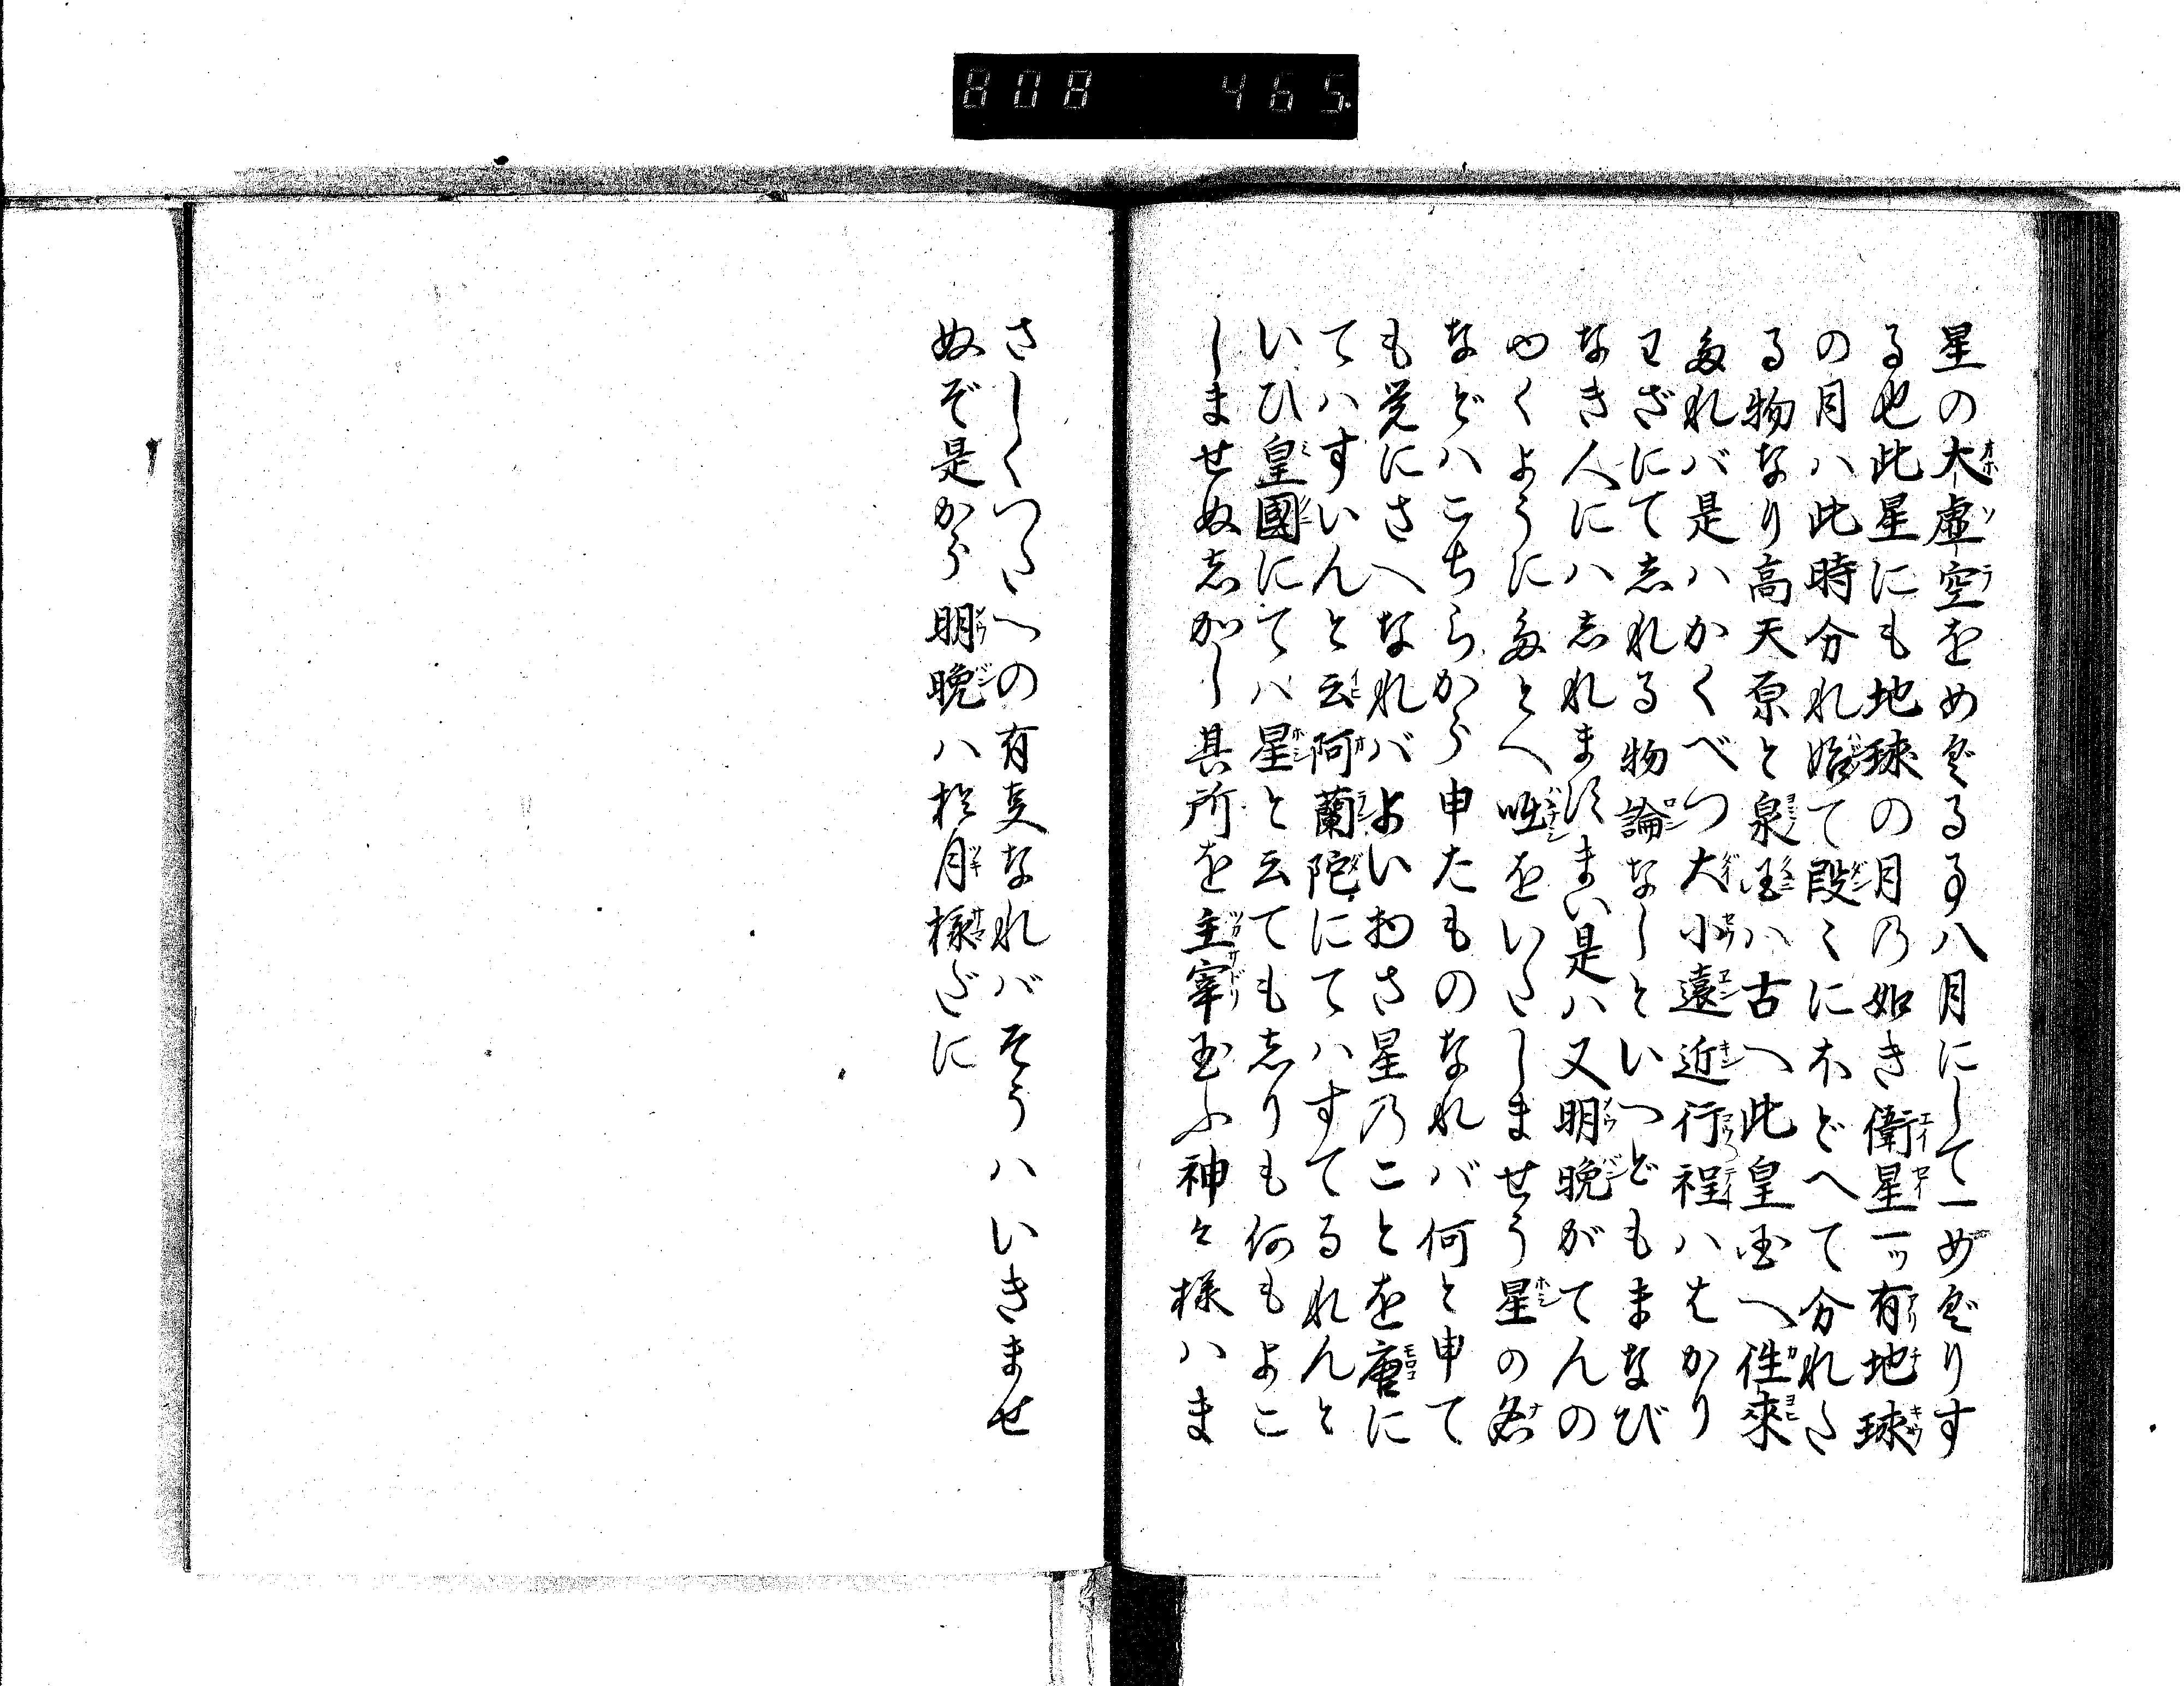 808 465
星の大虚空をめぐる事八月にして一めぐりす
る也此星にも地球の月乃如き衛星一ッ有地球
の月ハ此時分れ始て段々にホどへて分れた
る物なり高天原と泉国ハ古へ此皇国へ往來
有れバ是ハかくべつ大小遠近行程ハはかり
わざにて志れる物論なしといつどもまなび
なき人にハ志れま須まい是ハ又明晩がてんの
ゆくようにたとへ咄をいたしませう星の名
などハこちらから申たものなれバ何と申て
も覚にさへなれバよいわさ星乃ことを唐に
てハすいんと云阿蘭陀にてハすてるれんと
いひ皇國にてハ星と云ても志りも何もよこ
しませぬ志かし其所を主宰玉ふ神々様ハま
さしくつたへの有事なれバそうハいきませ
ぬぞ是から明晩ハ於月様だに